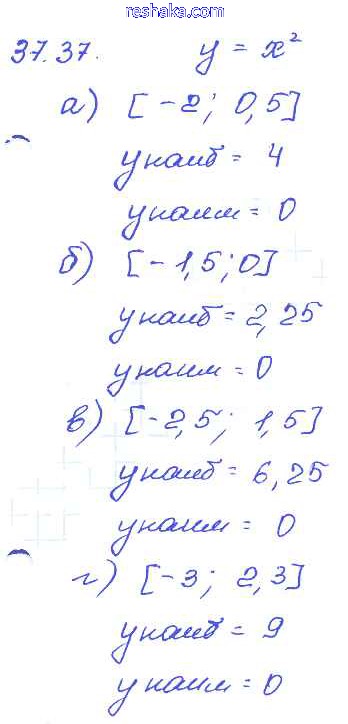 reshaka.com
37.37. y = x²
а) [-2; 0,5]
yнаиб = 4
yнаим = 0
б) [-1,5; 0]
yнаиб = 2,25
yнаим = 0
в) [-2,5; 1,5]
yнаиб = 6,25
yнаим = 0
г) [-3; 2,3]
yнаиб = 9
yнаим = 0